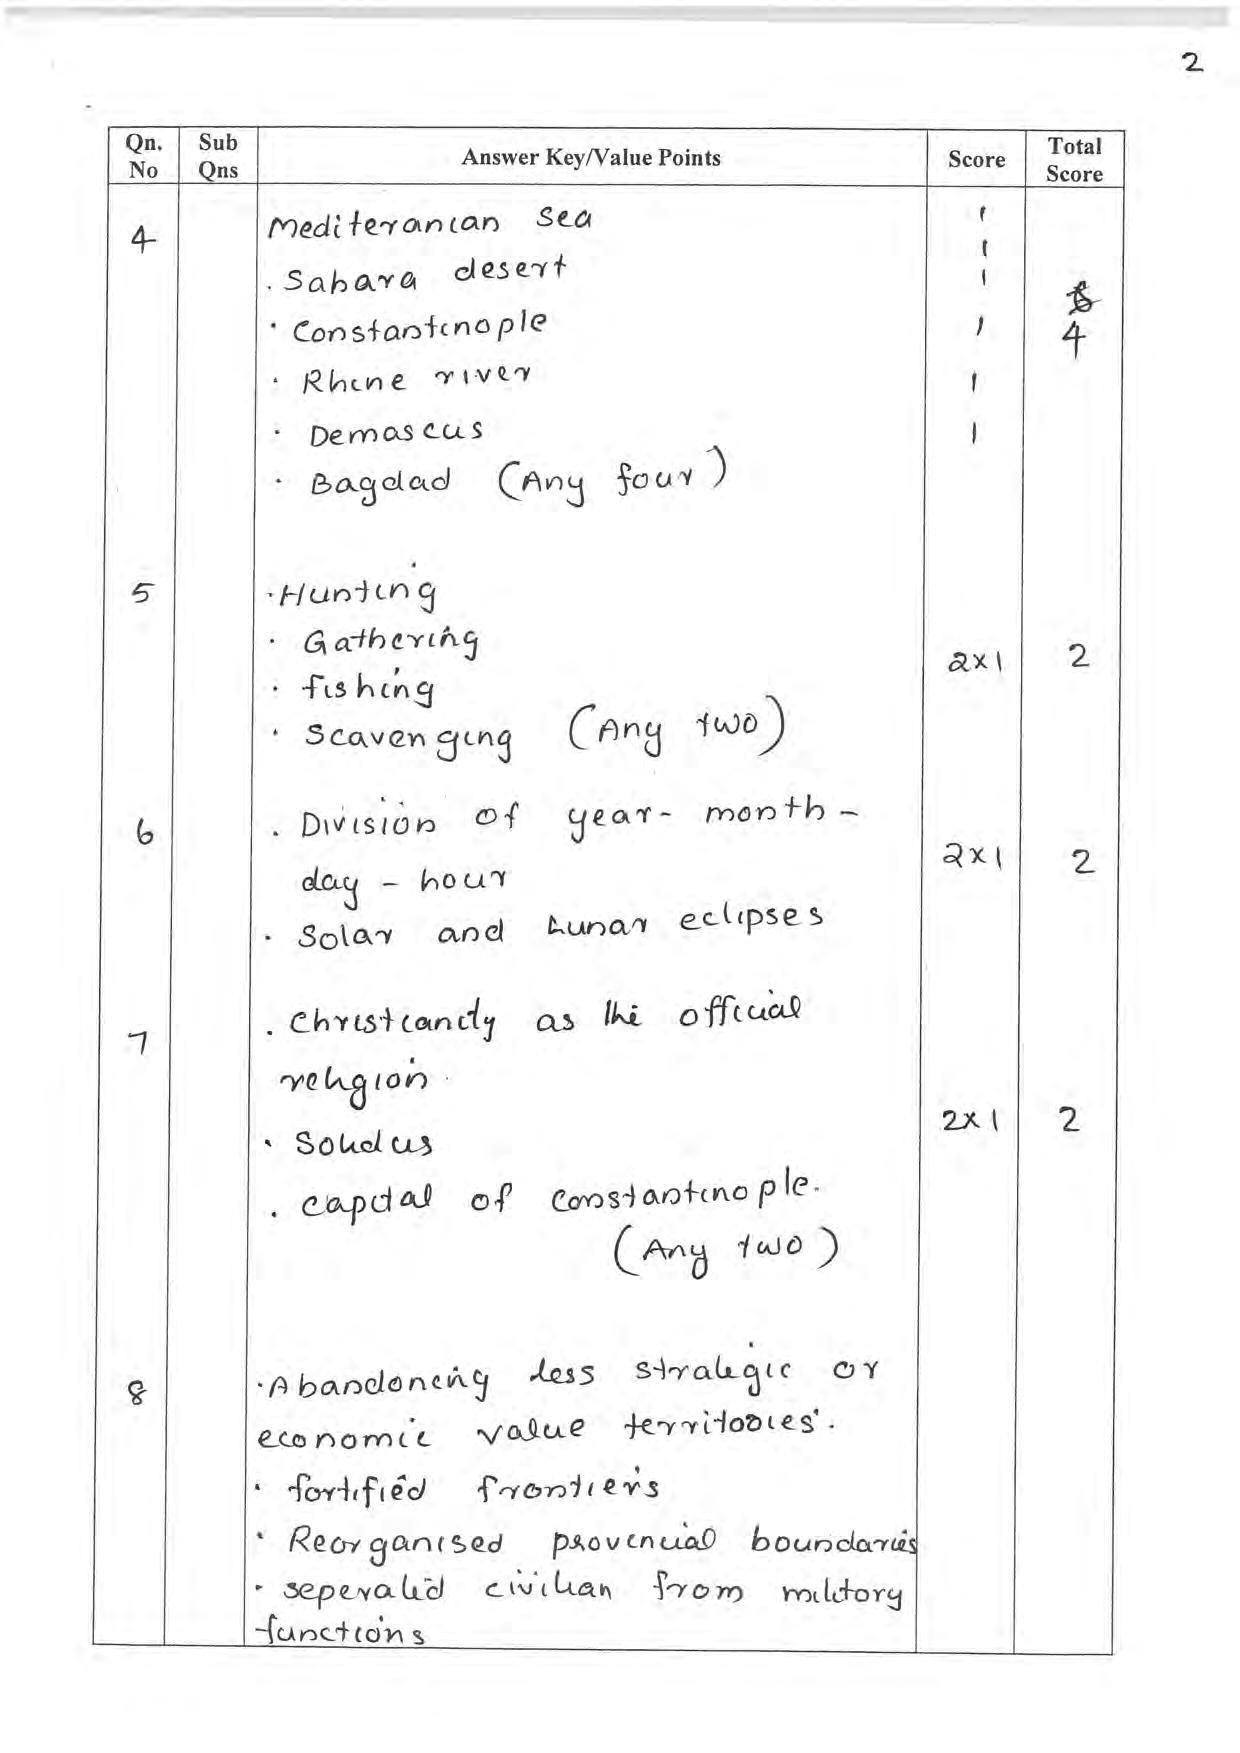 2
Qn. No
Sub Qns
Answer Key/Value Points
Score
Total Score
4
Mediteranian sea 1
. Sahara desert 1
1
· Constantinople 1
4
· Rhine river 1
· Demascus 1
· Bagdad (Any four)
5 · Hunting
· Gathering 2x1 2
· fishing
· Scavenging (Any two)
6 . Division of year- month - 2x1 2
day - hour
· Solar and Lunar eclipses
7 . Christianity as the official
religion.
· Solidus 2x1 2
. capital of Constantinople.
(Any two)
8 · Abandoning less strategic or
economic value territories.
· fortified frontiers
· Reorganised provincial boundaries
· seperated civilian from military
functions